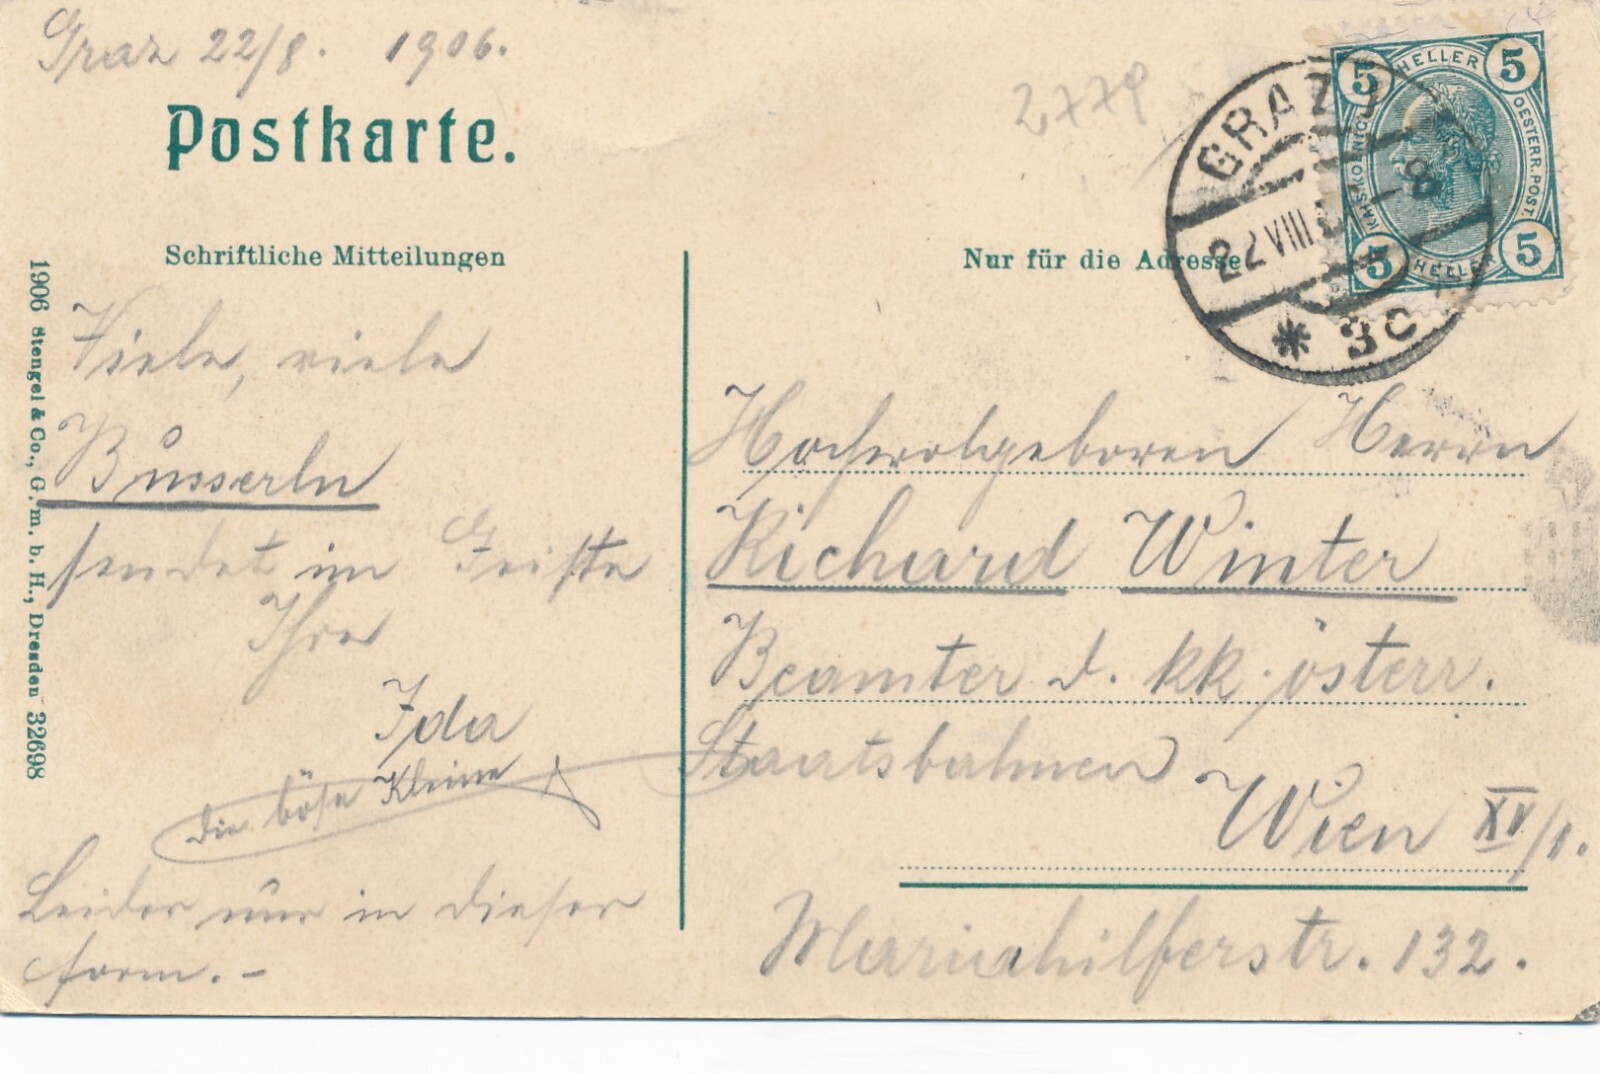 Graz 22/8. 1906.
Postkarte.
Schriftliche Mitteilungen
Viele, viele
Bůsserln
sendet im Geiste
Ihre
Ida
die böse Kleine
Leider nur in dieser
form. -
1906 Stengel & Co., G. m. b. H., Dresden 32698
2779
Nur für die Adresse
GRAZ
22 VIII
8
* 3c
5 HELLER 5
KAIS. KOENIGL. OESTERR. POST.
5 HELLER 5
Hochwolgeboren Herrn
Richard Winter
Beamter d. kk. österr.
Staatsbahnen
Wien XV/1.
Mariahilferstr. 132.